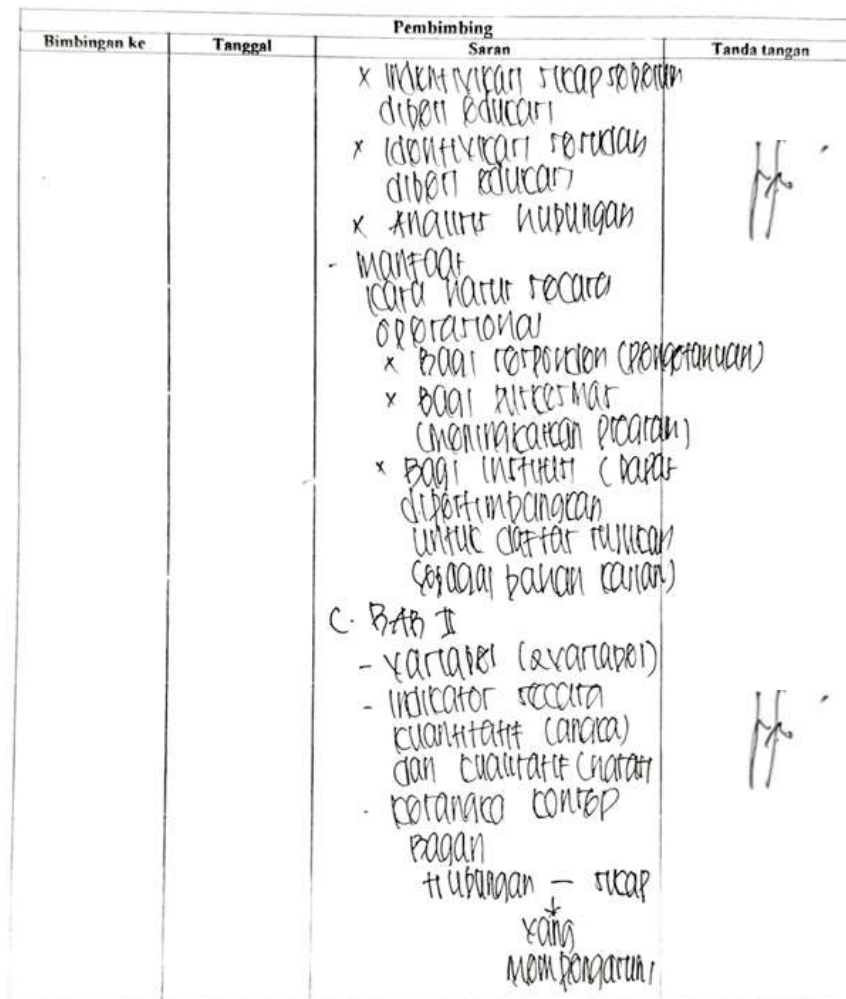 Pembimbing
Bimbingan ke Tanggal Saran Tanda tangan
x Indentivikasi sikap sebelum
diberi edukasi
x Identivikasi sesudah
diberi edukasi
x Analisis hubungan
- Manfaat
kata harus secara
operasional
x Bagi responden (pengetahuan)
x Bagi puskesmas
(meningkatkan program)
x Bagi institusi (dapat
dipertimbangkan
untuk daftar rujukan
sebagai bahan kajian)
C. BAB II
- Variabel (2 variabel)
- Indikator secara
kuantitatif (angka)
dan kualitatif (narasi
- Kerangka konsep
Bagan
Hubungan – sikap
yang
mempengaruhi